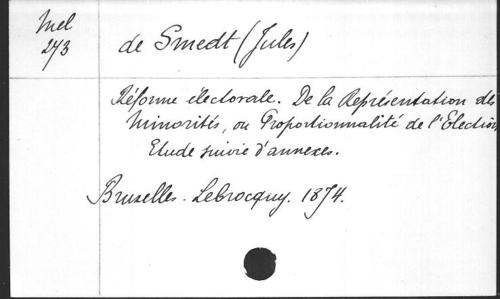 Mel
273
de Smedt (Jules)
Réforme électorale. De la Représentation des
Minorités, ou Proportionnalité de l'Election,
Etude suivie d'annexes.
Bruxelles. Lebrocquy. 1874.